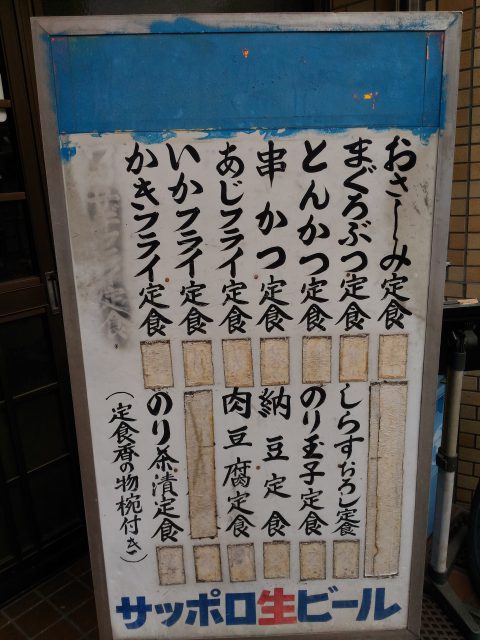 おさしみ定食
まぐろぶつ定食
とんかつ定食
串かつ定食
あじフライ定食
いかフライ定食
かきフライ定食
しらすおろし定食
のり玉子定食
納豆定食
肉豆腐定食
のり茶漬定食
(定食香の物椀付き)
サッポロ生ビール